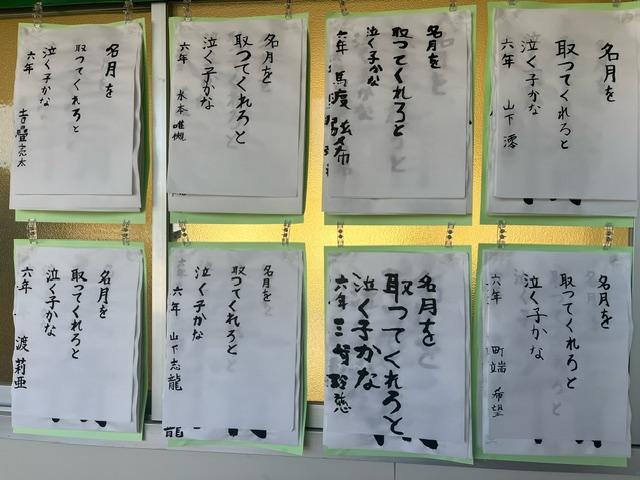 名月を
取ってくれろと
泣く子かな
六年 山下 澪
名月を
取ってくれろと
泣く子かな
六年 馬渡
名月を
取ってくれろと
泣く子かな
六年 水本
名月を
取ってくれろと
泣く子かな
六年
名月を
取ってくれろと
泣く子かな
六年 町端 希望
名月を
取ってくれろと
泣く子かな
六年
名月を
取ってくれろと
泣く子かな
六年 山下志龍
龍
名月を
取ってくれろと
泣く子かな
六年 渡 莉亜